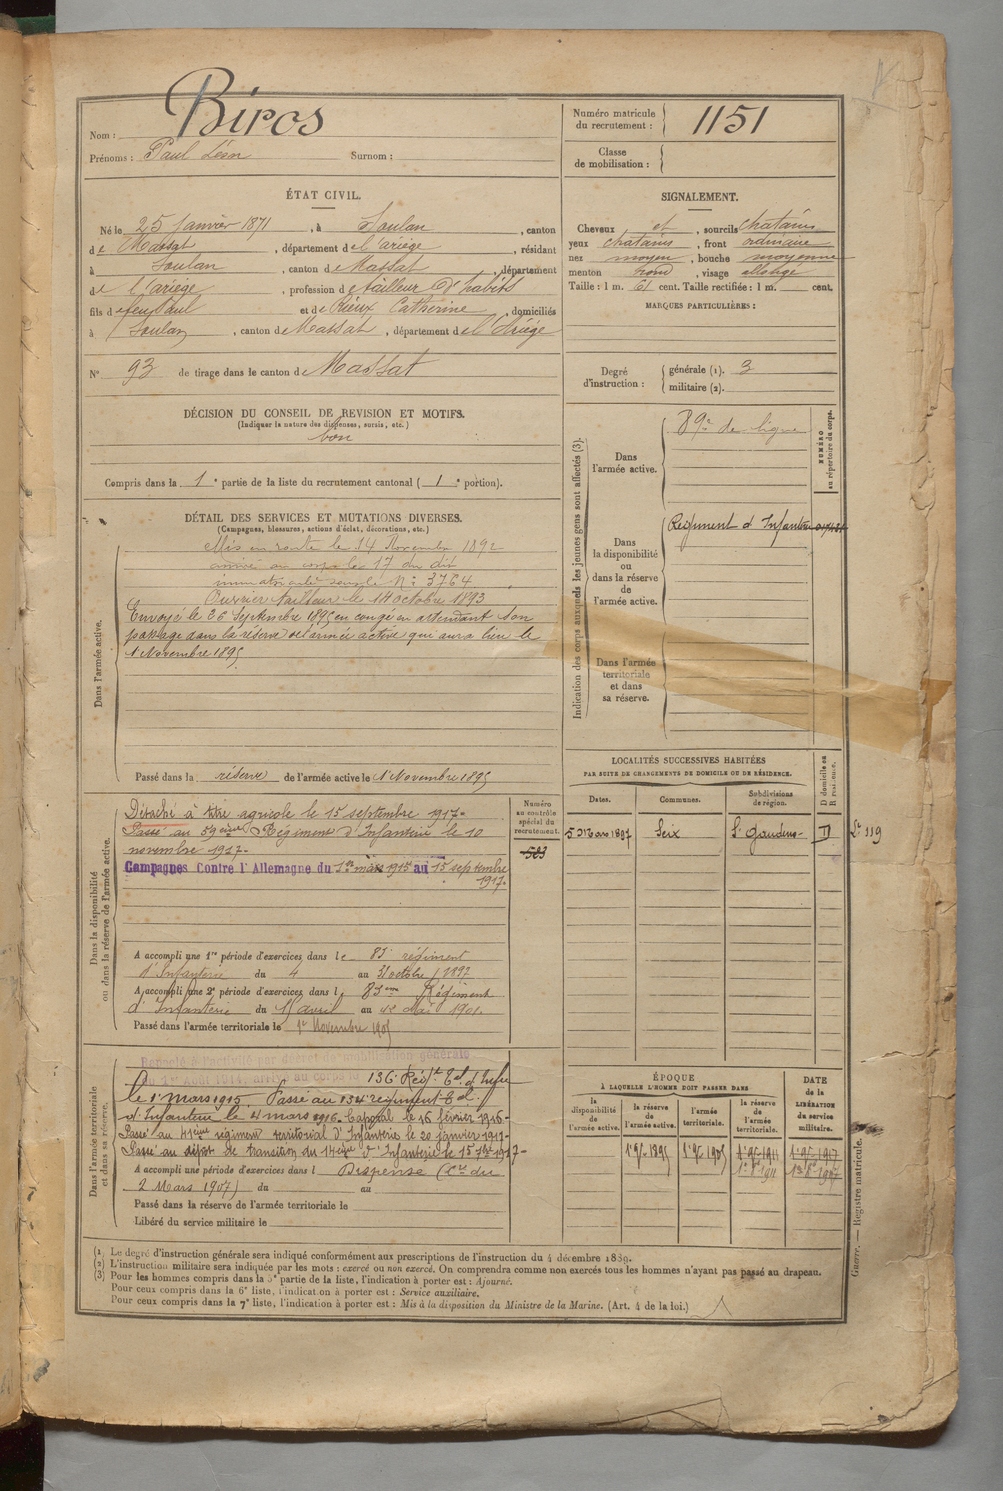 Nom : Biros
Prénoms : Paul Léon Surnom :
Numéro matricule du recrutement : 1151
Classe de mobilisation :
ÉTAT CIVIL.
Né le 25 Janvier 1871, à Soulan, canton
de Massat, département de l'ariège, résidant
à Soulan, canton de Massat, département
de l'ariège, profession de tailleur d'habits
fils de feu Paul et de Rieux Catherine, domiciliés
à Soulan, canton de Massat, département de l'Ariège
N° 93 de tirage dans le canton de Massat
DÉCISION DU CONSEIL DE REVISION ET MOTIFS.
(Indiquer la nature des dispenses, sursis, etc.)
bon
Compris dans la 1e partie de la liste du recrutement cantonal (1e portion).
SIGNALEMENT.
Cheveux et, sourcils chatains
yeux chatains, front ordinaire
nez moyen, bouche moyenne
menton rond, visage allongé
Taille : 1 m. 61 cent. Taille rectifiée : 1 m. cent.
MARQUES PARTICULIÈRES :
Degré d'instruction : générale (1). 3
militaire (2).
DÉTAIL DES SERVICES ET MUTATIONS DIVERSES.
(Campagnes, blessures, actions d'éclat, décorations, etc.)
Dans l'armée active.
Mis en route le 14 Novembre 1892
arrivé au corps le 17 du dit
immatriculé sous le N° 3764
Ouvrier tailleur le 14 octobre 1893
Envoyé le 26 Septembre 1895 en congé en attendant son
passage dans la réserve de l'armée active qui aura lieu le
1 Novembre 1895
Passé dans la réserve de l'armée active le 1 Novembre 1895
Indication des corps auxquels les jeunes gens sont affectés (3).
NUMÉRO au répertoire du corps.
Dans l'armée active.
89e de ligne
Dans la disponibilité ou dans la réserve de l'armée active.
Régiment d'Infanterie
Dans l'armée territoriale et dans sa réserve.
Dans la disponibilité ou dans la réserve de l'armée active.
Détaché à titre agricole le 15 septembre 1917.
Passé au 59ème Régiment d'Infanterie le 10
novembre 1917.
Campagnes Contre l'Allemagne du 1er mars 1915 au 15 septembre
1917.
Numéro au contrôle spécial du recrutement.
583
A accompli une 1re période d'exercices dans le 83e régiment
d'Infanterie du 4 au 31 octobre 1897
A accompli une 2e période d'exercices dans le 83ème Régiment
d'Infanterie du 15 avril au 12 Mai 1901.
Passé dans l'armée territoriale le 1er Novembre 1905
LOCALITÉS SUCCESSIVES HABITÉES
PAR SUITE DE CHANGEMENTS DE DOMICILE OU DE RÉSIDENCE.
Dates. Communes. Subdivisions de région. D domicile ou R résidence.
5 Mars 1897 Seix St Gaudens D
Dans l'armée territoriale et dans sa réserve.
Rappelé à l'activité par décret de mobilisation générale
du 1er Août 1914, arrivé au corps le 136e Régt Tal d'Infie
le 1er mars 1915. Passé au 134e régiment Tal
d'Infanterie le 4 mars 1916. Caporal le 16 février 1916.
Passé au 41ème régiment territorial d'Infanterie le 20 janvier 1917.
Passé au dépôt de transition du 14ème d'Infanterie le 15 7bre 1917.
A accompli une période d'exercices dans l Dispensé (Cre du
2 Mars 1907) du au
Passé dans la réserve de l'armée territoriale le
Libéré du service militaire le
ÉPOQUE
À LAQUELLE L'HOMME DOIT PASSER DANS
la disponibilité de l'armée active. la réserve de l'armée active. l'armée territoriale. la réserve de l'armée territoriale.
DATE de la LIBÉRATION du service militaire.
1er 9bre 1895 1er 9bre 1905 1er 9bre 1911 1er 9bre 1917
Guerre. — Registre matricule.
(1) Le degré d'instruction générale sera indiqué conformément aux prescriptions de l'instruction du 4 décembre 1889.
(2) L'instruction militaire sera indiquée par les mots : exercé ou non exercé. On comprendra comme non exercés tous les hommes n'ayant pas passé au drapeau.
(3) Pour les hommes compris dans la 5e partie de la liste, l'indication à porter est : Ajourné.
Pour ceux compris dans la 6e liste, l'indication à porter est : Service auxiliaire.
Pour ceux compris dans la 7e liste, l'indication à porter est : Mis à la disposition du Ministre de la Marine. (Art. 4 de la loi.)